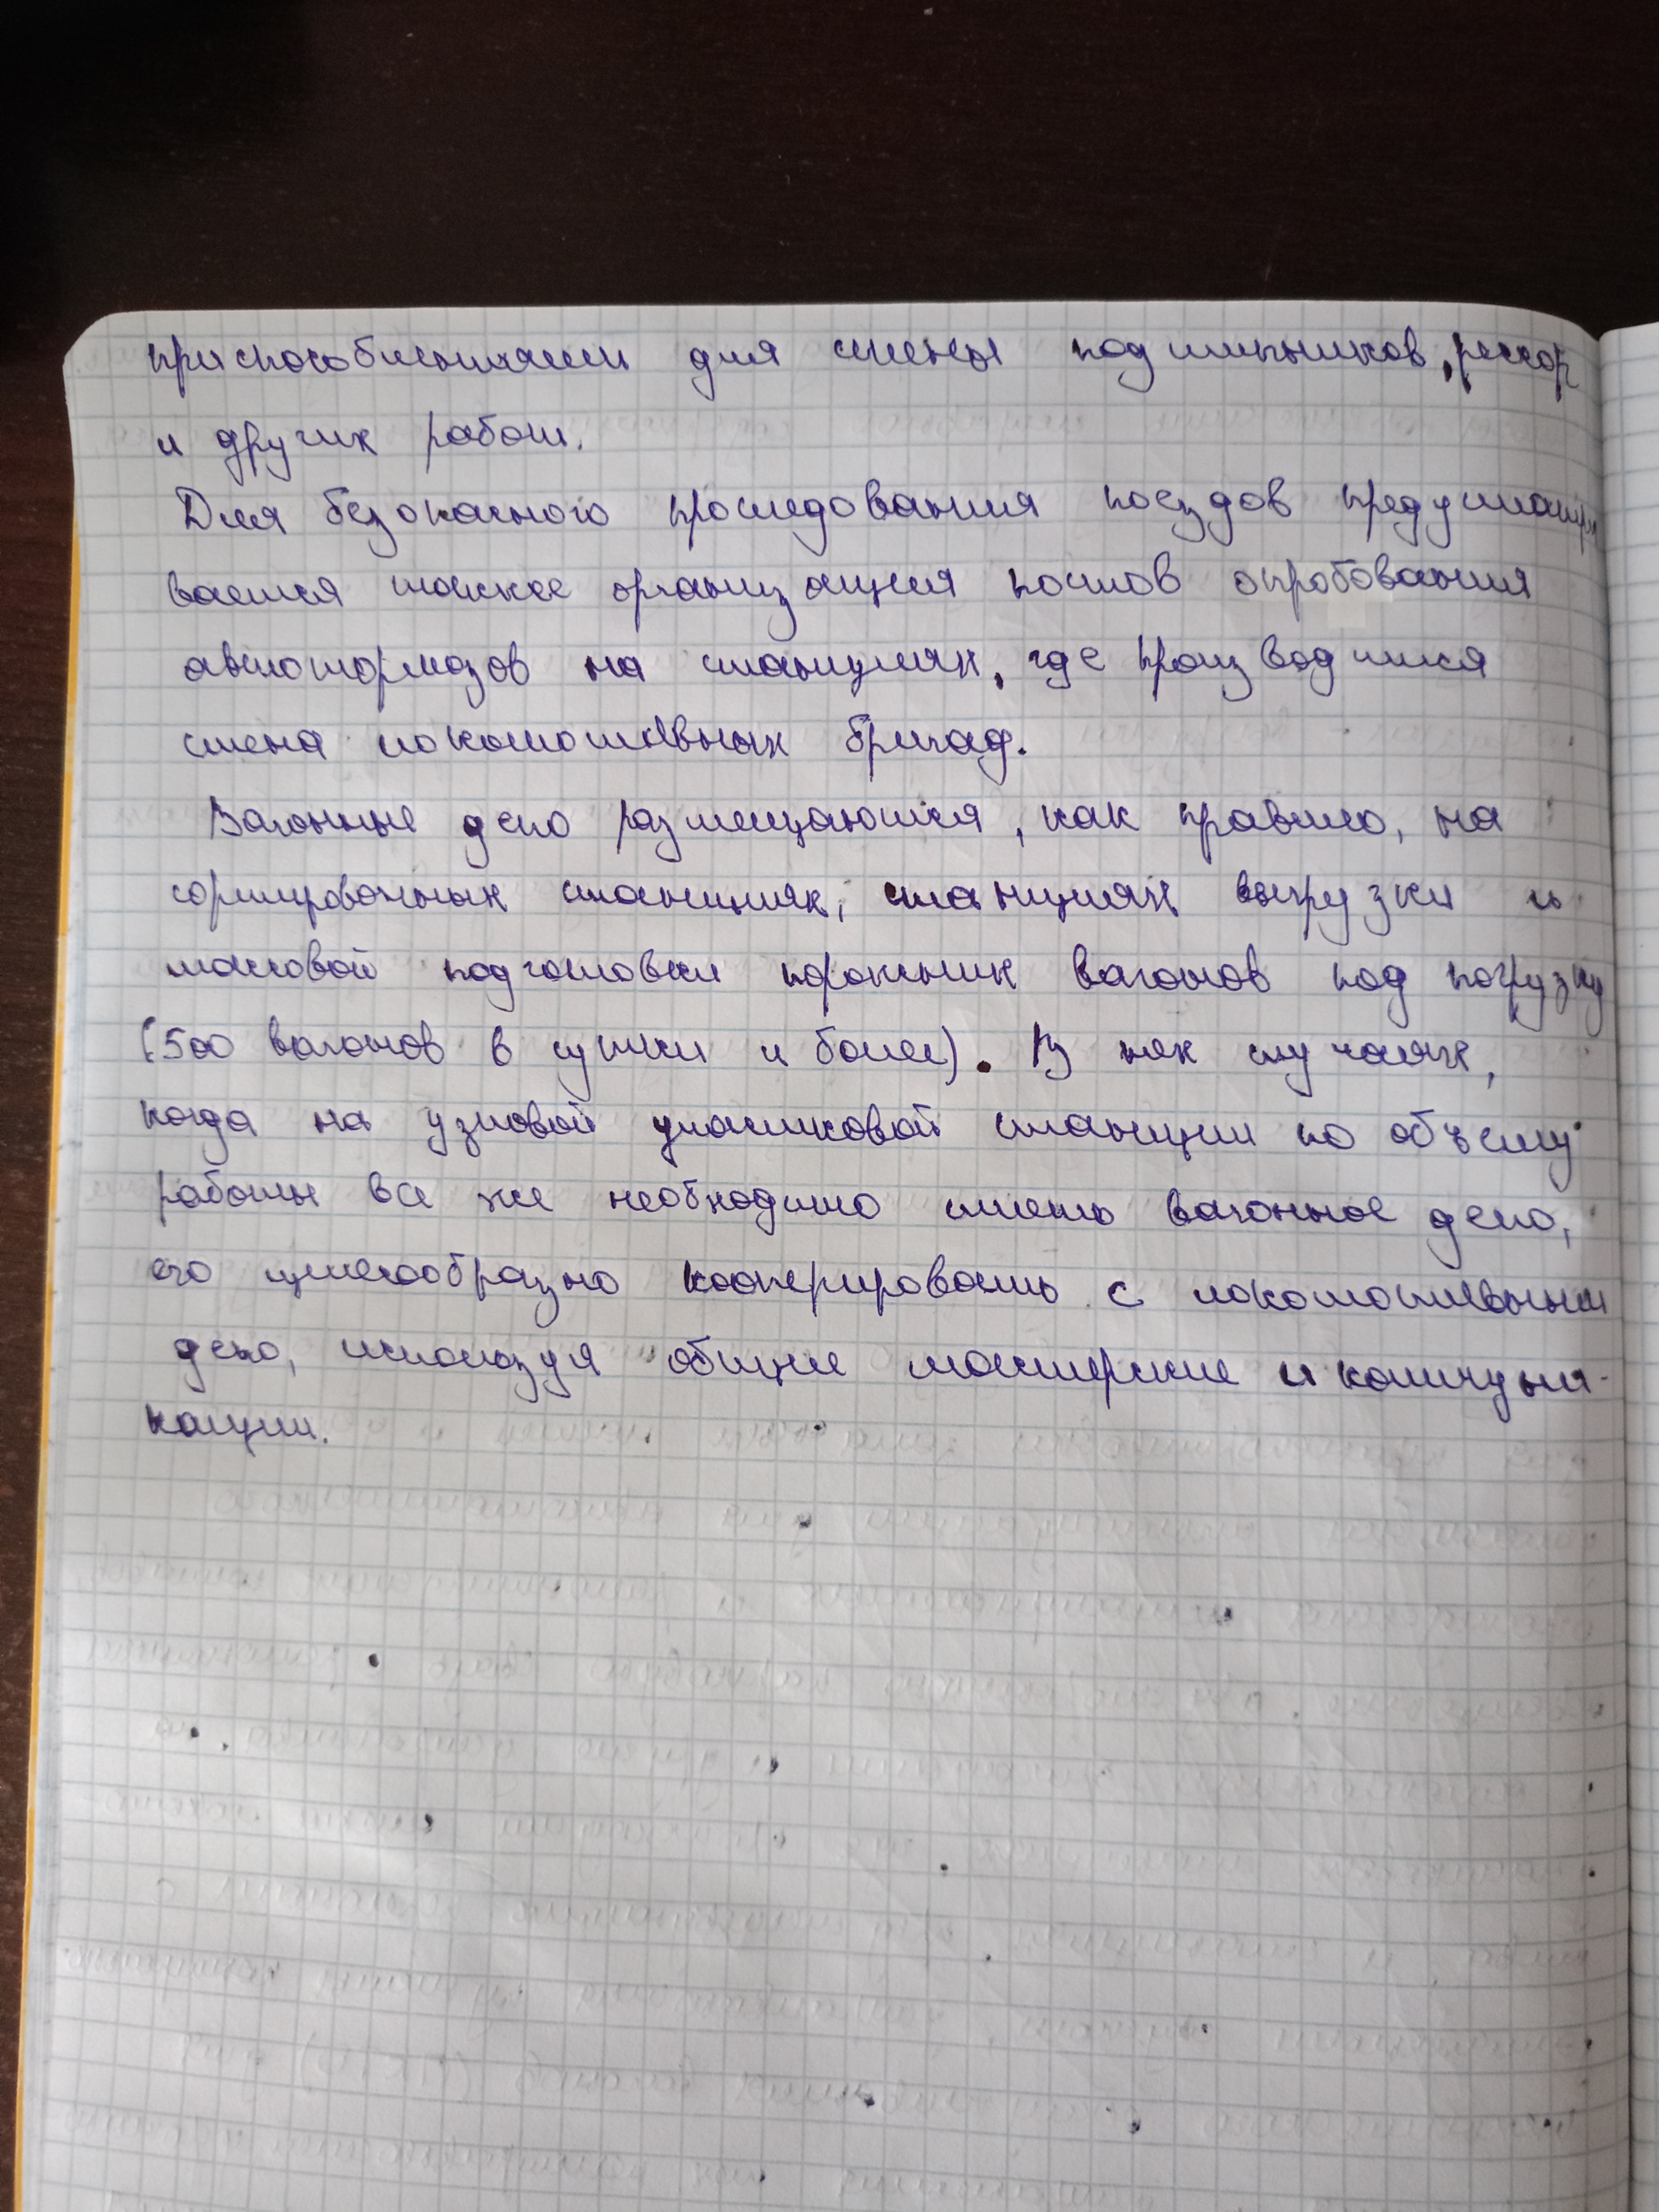 приспособлениями для смены подшипников, рессор
и других работ.
Для безопасного проследования поездов предусматри
вается также организация постов опробования
автотормозов на станциях, где производится
смена локомотивных бригад.
Вагонные депо размещаются, как правило, на
сортировочных станциях, станциях выгрузки и
массовой подготовки порожних вагонов под погрузку
(500 вагонов в сутки и более). В тех случаях,
когда на узловой участковой станции по объему
работы все же необходимо иметь вагонное депо,
его целесообразно кооперировать с локомотивным
депо, используя общие мастерские и коммуни-
кации.